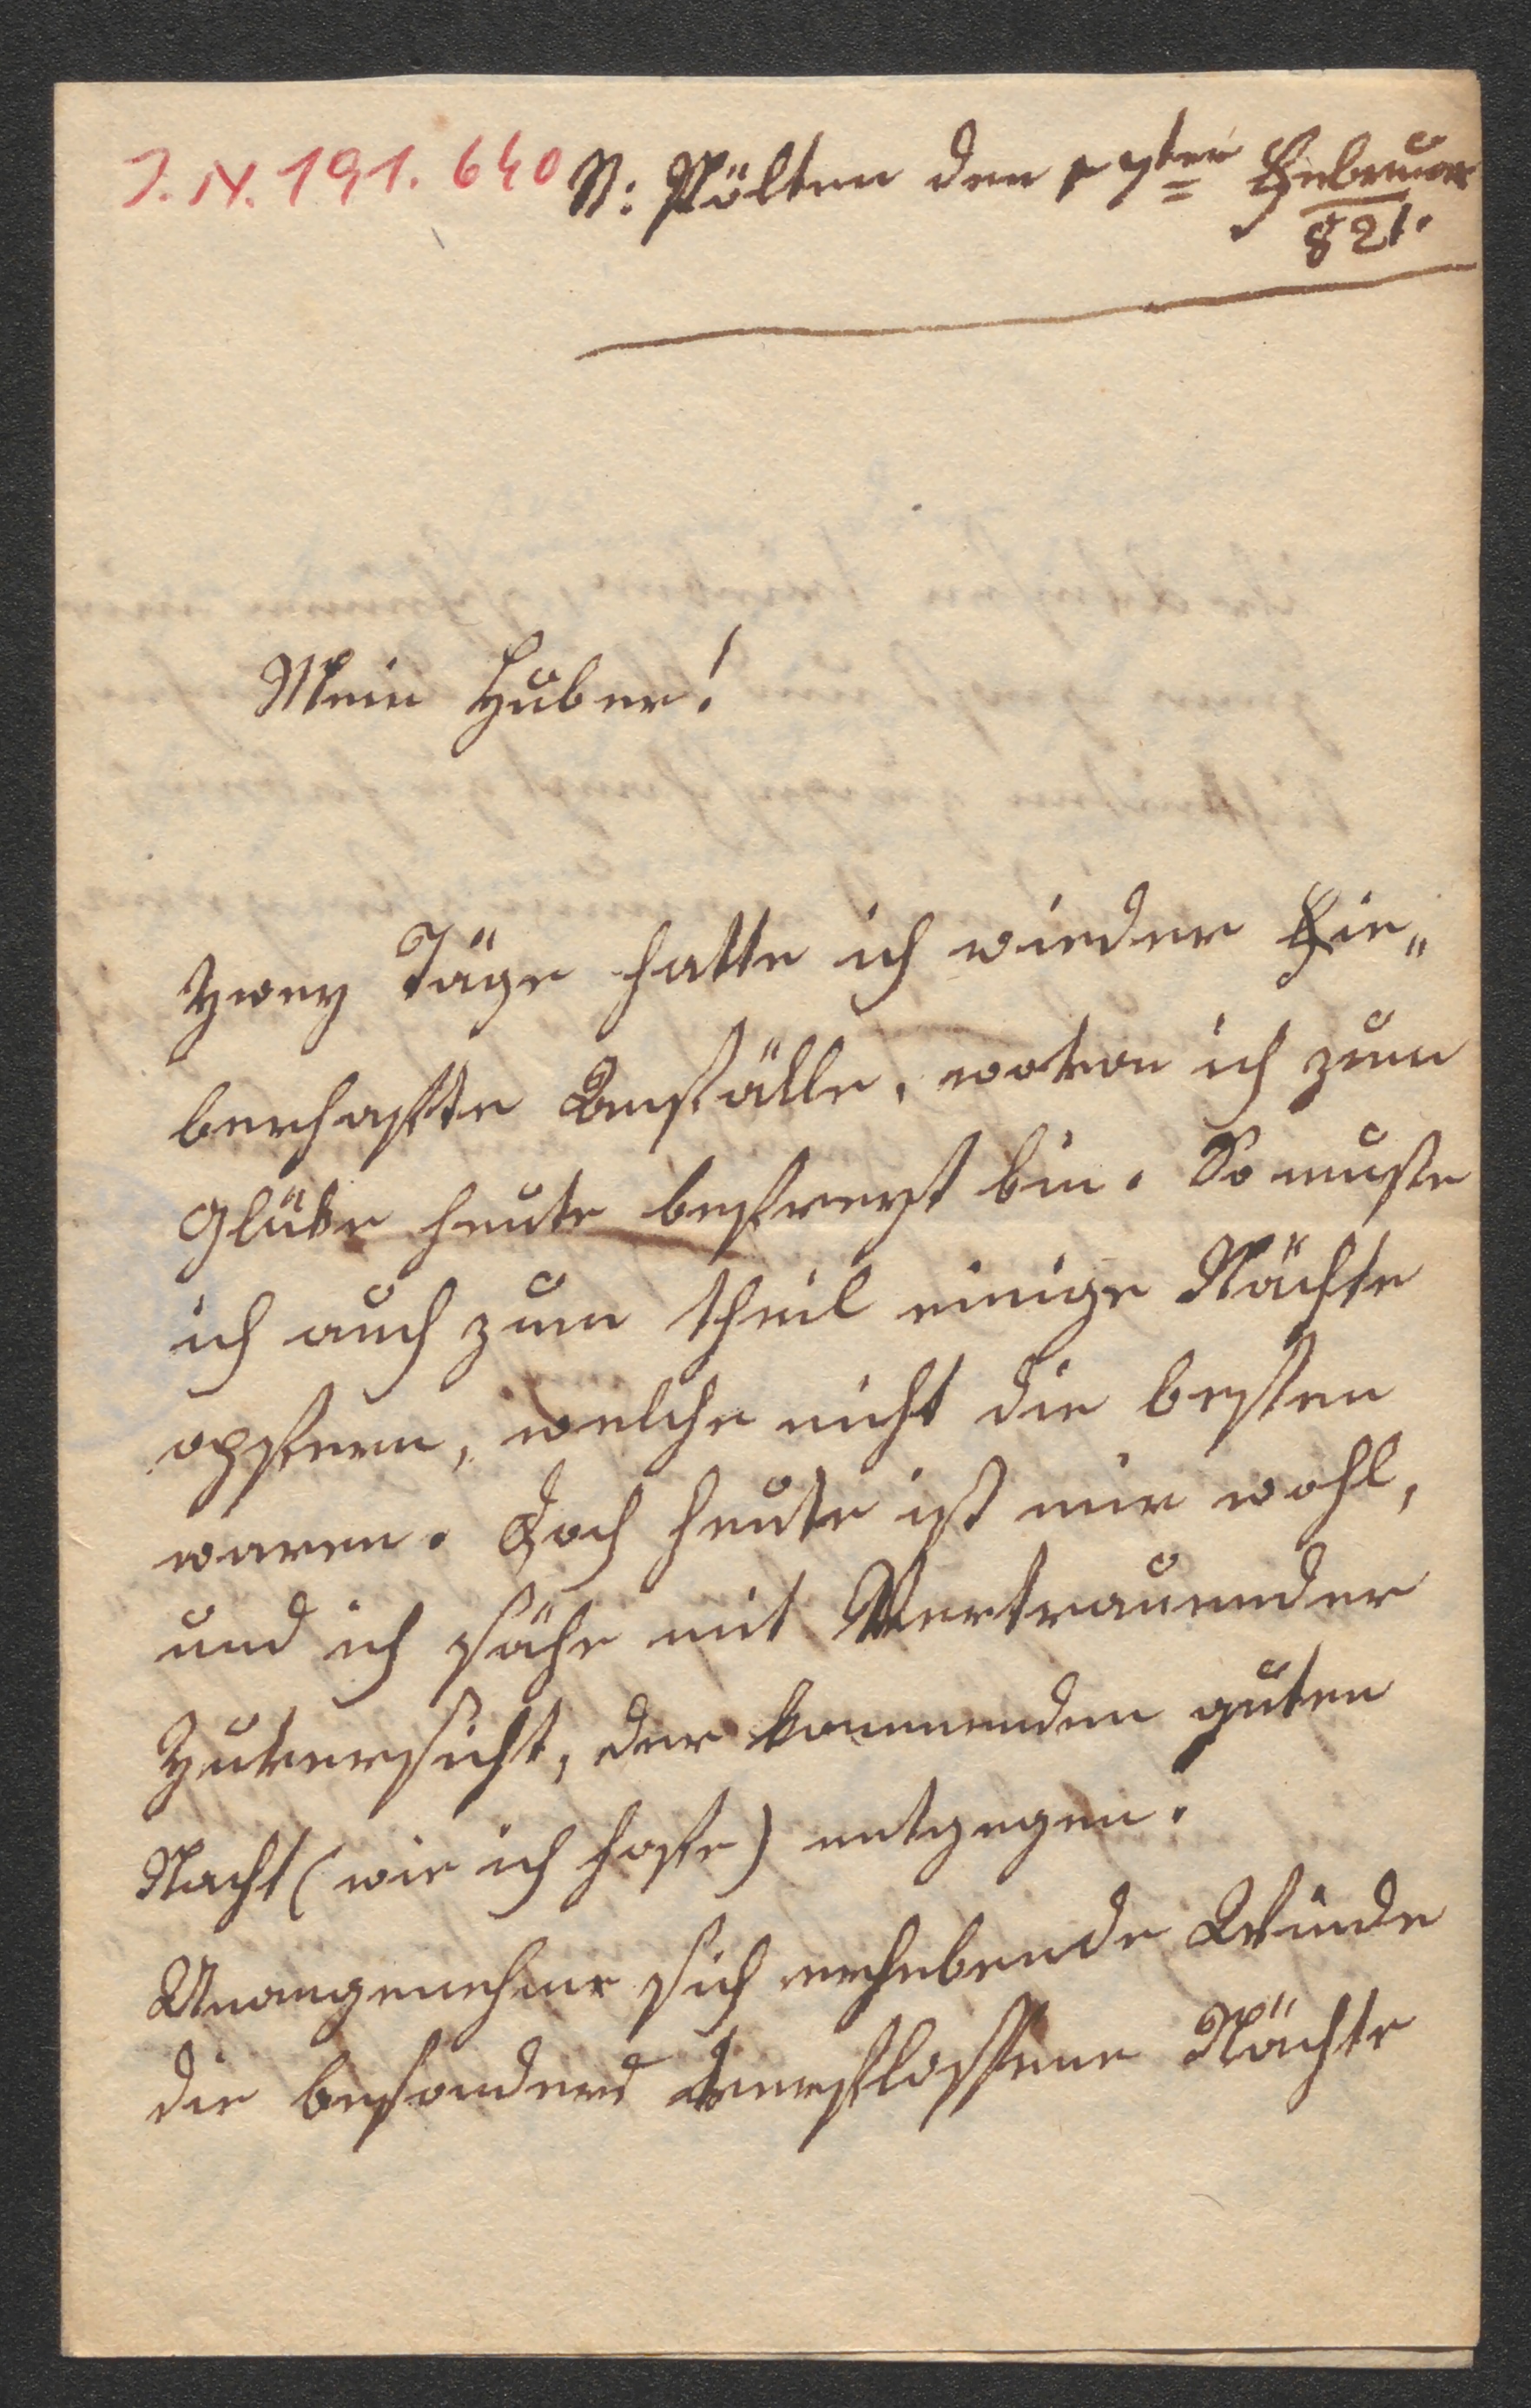 I. N. 191.640 St: Pölten den 17ten Februar
821.
Mein Huber!
Zwey Täge hatte ich wieder Fie„
berhafte Anfälle, wovon ich zum
Glüke heute befreyt bin. So mußte
ich auch zum theil einige Nächte
opfern, welche nicht die besten
waren. Doch heute ist mir wohl,
und ich sähe mit Vertrauender
Zuversicht, der kommenden guten
Nacht (wie ich hoffe) entgegen.
Unangenehme sich erhebende Winde
die besonders verflossene Nächte